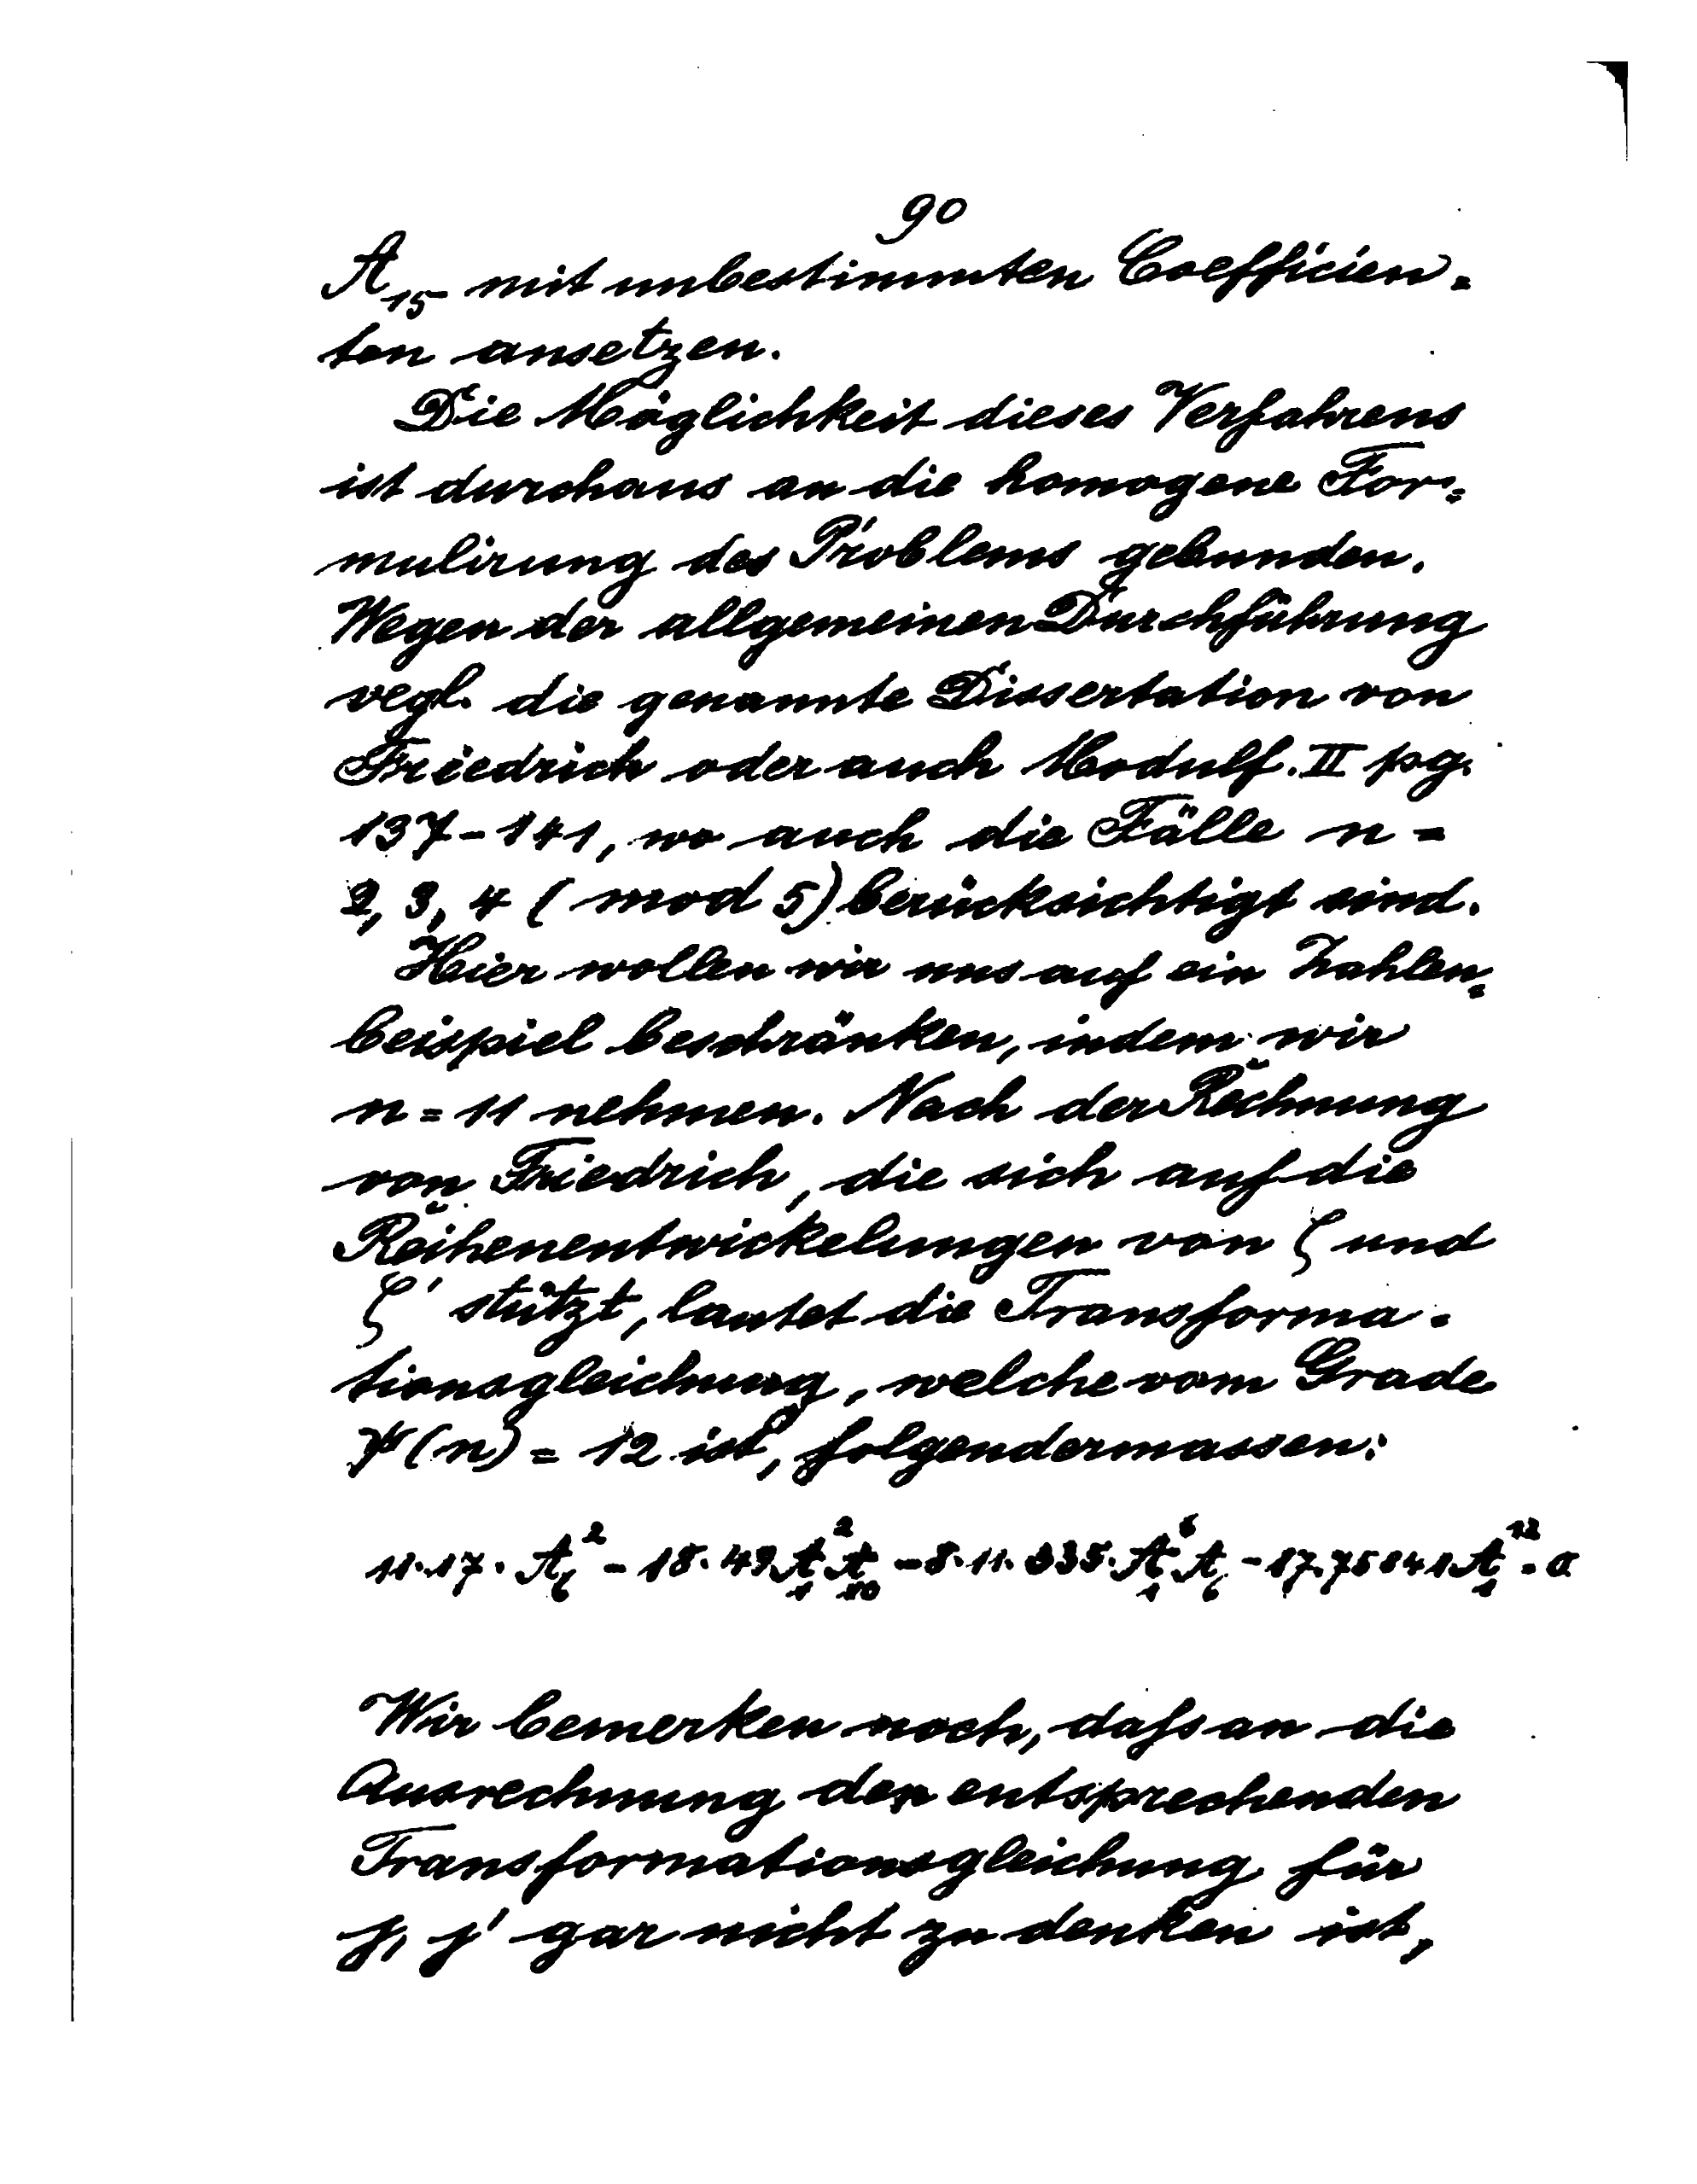 90
A₁₅ mit unbestimmten Coefficien=
ten ansetzen.
Die Möglichkeit dieses Verfahrens
ist durchaus an die homogene For=
mulirung des Problems gebunden.
Wegen der allgemeinen Durchführung
vegl. die genannte Dissertation von
Friedrich oder auch Modulf. II pg.
137-141, wo auch die Fälle n =
2, 3, 4 (mod 5) berücksichtigt sind.
Hier wollen wir uns auf ein Zahlen=
beispiel beschränken, indem wir
n = 11 nehmen. Nach der Rechnung
von Friedrich, die sich auf die
Reihenentwickelungen von ζ und
ζ' stützt, lautet die Transforma=
tionsgleichung, welche vom Grade
ψ(n) = 12 ist, folgendermassen:
11·17·A₆² - 18·49A₁²A₁₀ - 8·11·335·A₁⁶A₆ - 17·75841A₁¹² = 0
Wir bemerken noch, dafs an die
Ausrechnung der entsprechenden
Transformationsgleichung für
j, j' gar nicht zu denken ist,